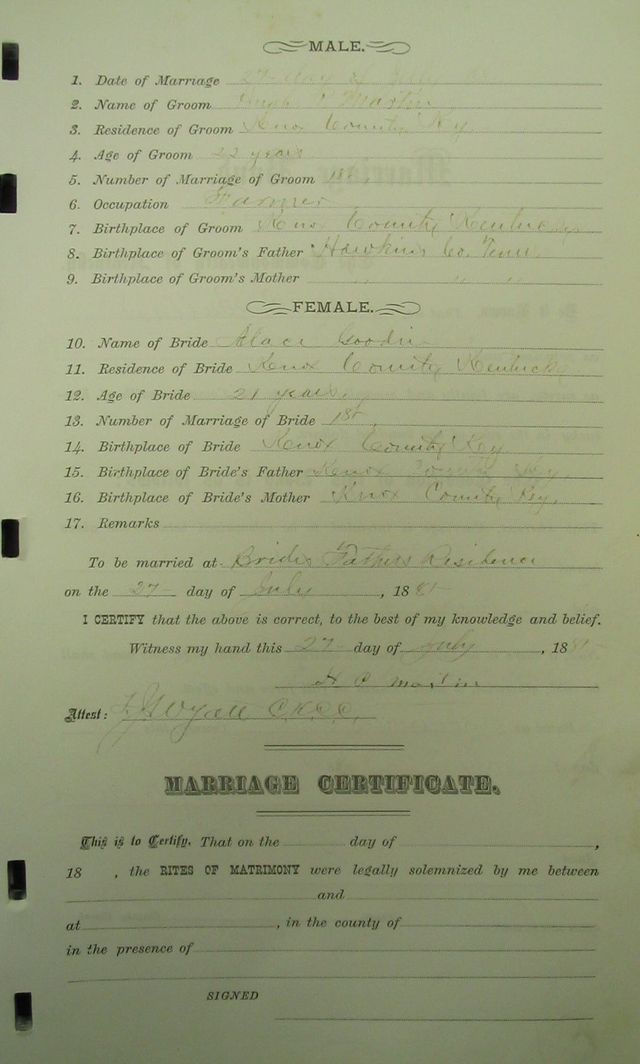 MALE.
1. Date of Marriage 27 day of July
2. Name of Groom Hugh C Martin
3. Residence of Groom Knox County Ky
4. Age of Groom 22 years
5. Number of Marriage of Groom 1st
6. Occupation Farmer
7. Birthplace of Groom Knox County Kentucky
8. Birthplace of Groom's Father Hawkins Co. Tenn
9. Birthplace of Groom's Mother " " "
FEMALE.
10. Name of Bride Goodin
11. Residence of Bride Knox County Kentucky
12. Age of Bride 21 years
13. Number of Marriage of Bride 1st
14. Birthplace of Bride Knox County Key
15. Birthplace of Bride's Father Knox County Key
16. Birthplace of Bride's Mother Knox County Key,
17. Remarks
To be married at Brides Fathers Residence
on the 27 day of July , 188
I CERTIFY that the above is correct, to the best of my knowledge and belief.
Witness my hand this 27 day of July , 188
H C Martin
Attest:
MARRIAGE CERTIFICATE.
This is to Certify, That on the day of ,
18 , the RITES OF MATRIMONY were legally solemnized by me between
and
at , in the county of
in the presence of
SIGNED